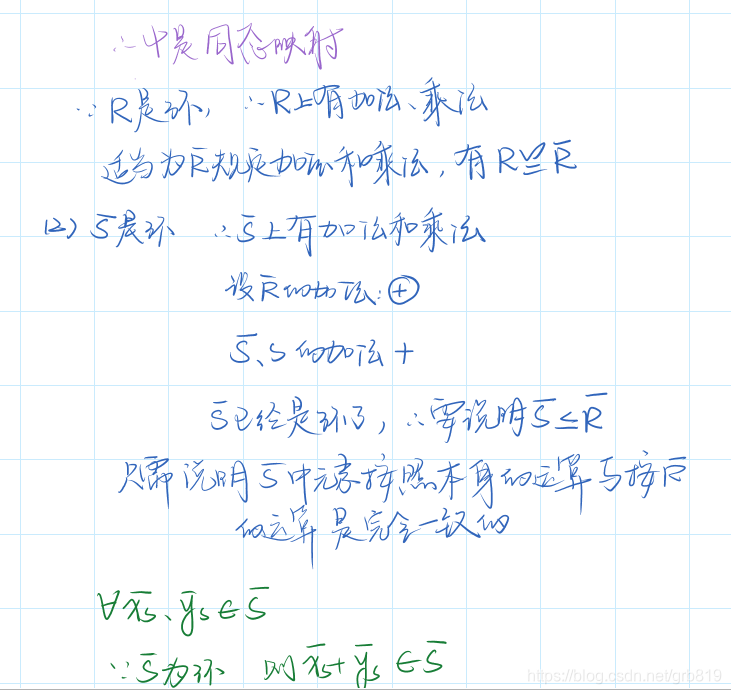 ∴中是同态映射
∵R是环, ∴R上有加法、乘法
适当为R̄规定加法和乘法, 有R≌R̄
(2) S̄是环 ∴S̄上有加法和乘法
设R̄的加法: ⊕
S̄、S的加法 +
S̄已经是环了, ∴要说明S̄≤R̄
只需说明S̄中元素按照本身的运算与按R̄
的运算是完全一致的
∀x̄ₛ、ȳₛ∈S̄
∵S̄为环 则x̄ₛ+ȳₛ∈S̄
https://blog.csdn.net/grb819